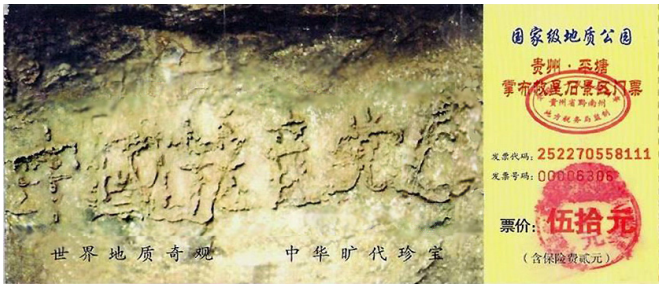 中國共產党亡
世界地质奇观 中华旷代珍宝
国家级地质公园
贵州·平塘
掌布救星石景区门票
贵州省黔南州
地方税务局监制
发票代码:252270558111
发票号码:00006306
票价:伍拾元
(含保险费贰元)